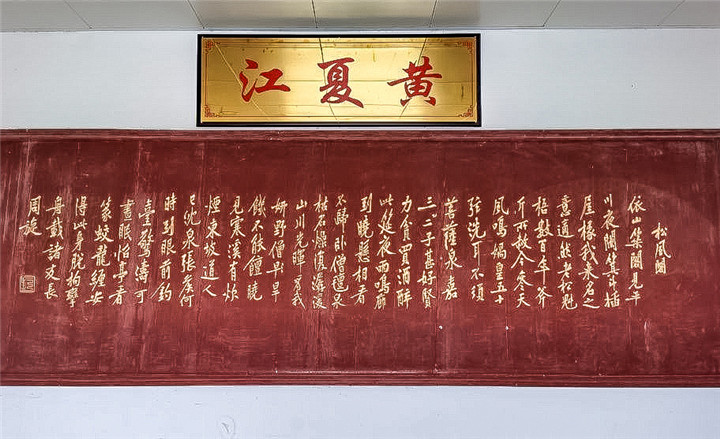 江夏黄
松風閣
依山築閣見平
川夜闌箕斗插
屋椽我來名之
意適然老松魁
梧數百年斧
斤所赦今參天
風鳴媧皇五十
弦洗耳不須
菩薩泉嘉
三二子甚好賢
力貧買酒醉
此筵夜雨鳴廊
到曉懸相看
不歸卧僧氈泉
枯石燥復潺湲
山川光暉為我
妍野僧早旱
饑不能饘曉
見寒溪有炊
煙東坡道人
已沈泉張侯何
時到眼前釣
臺驚濤可
晝眠怡亭看
篆蛟龍纏安
得此身脱拘攣
舟載諸友長
周旋